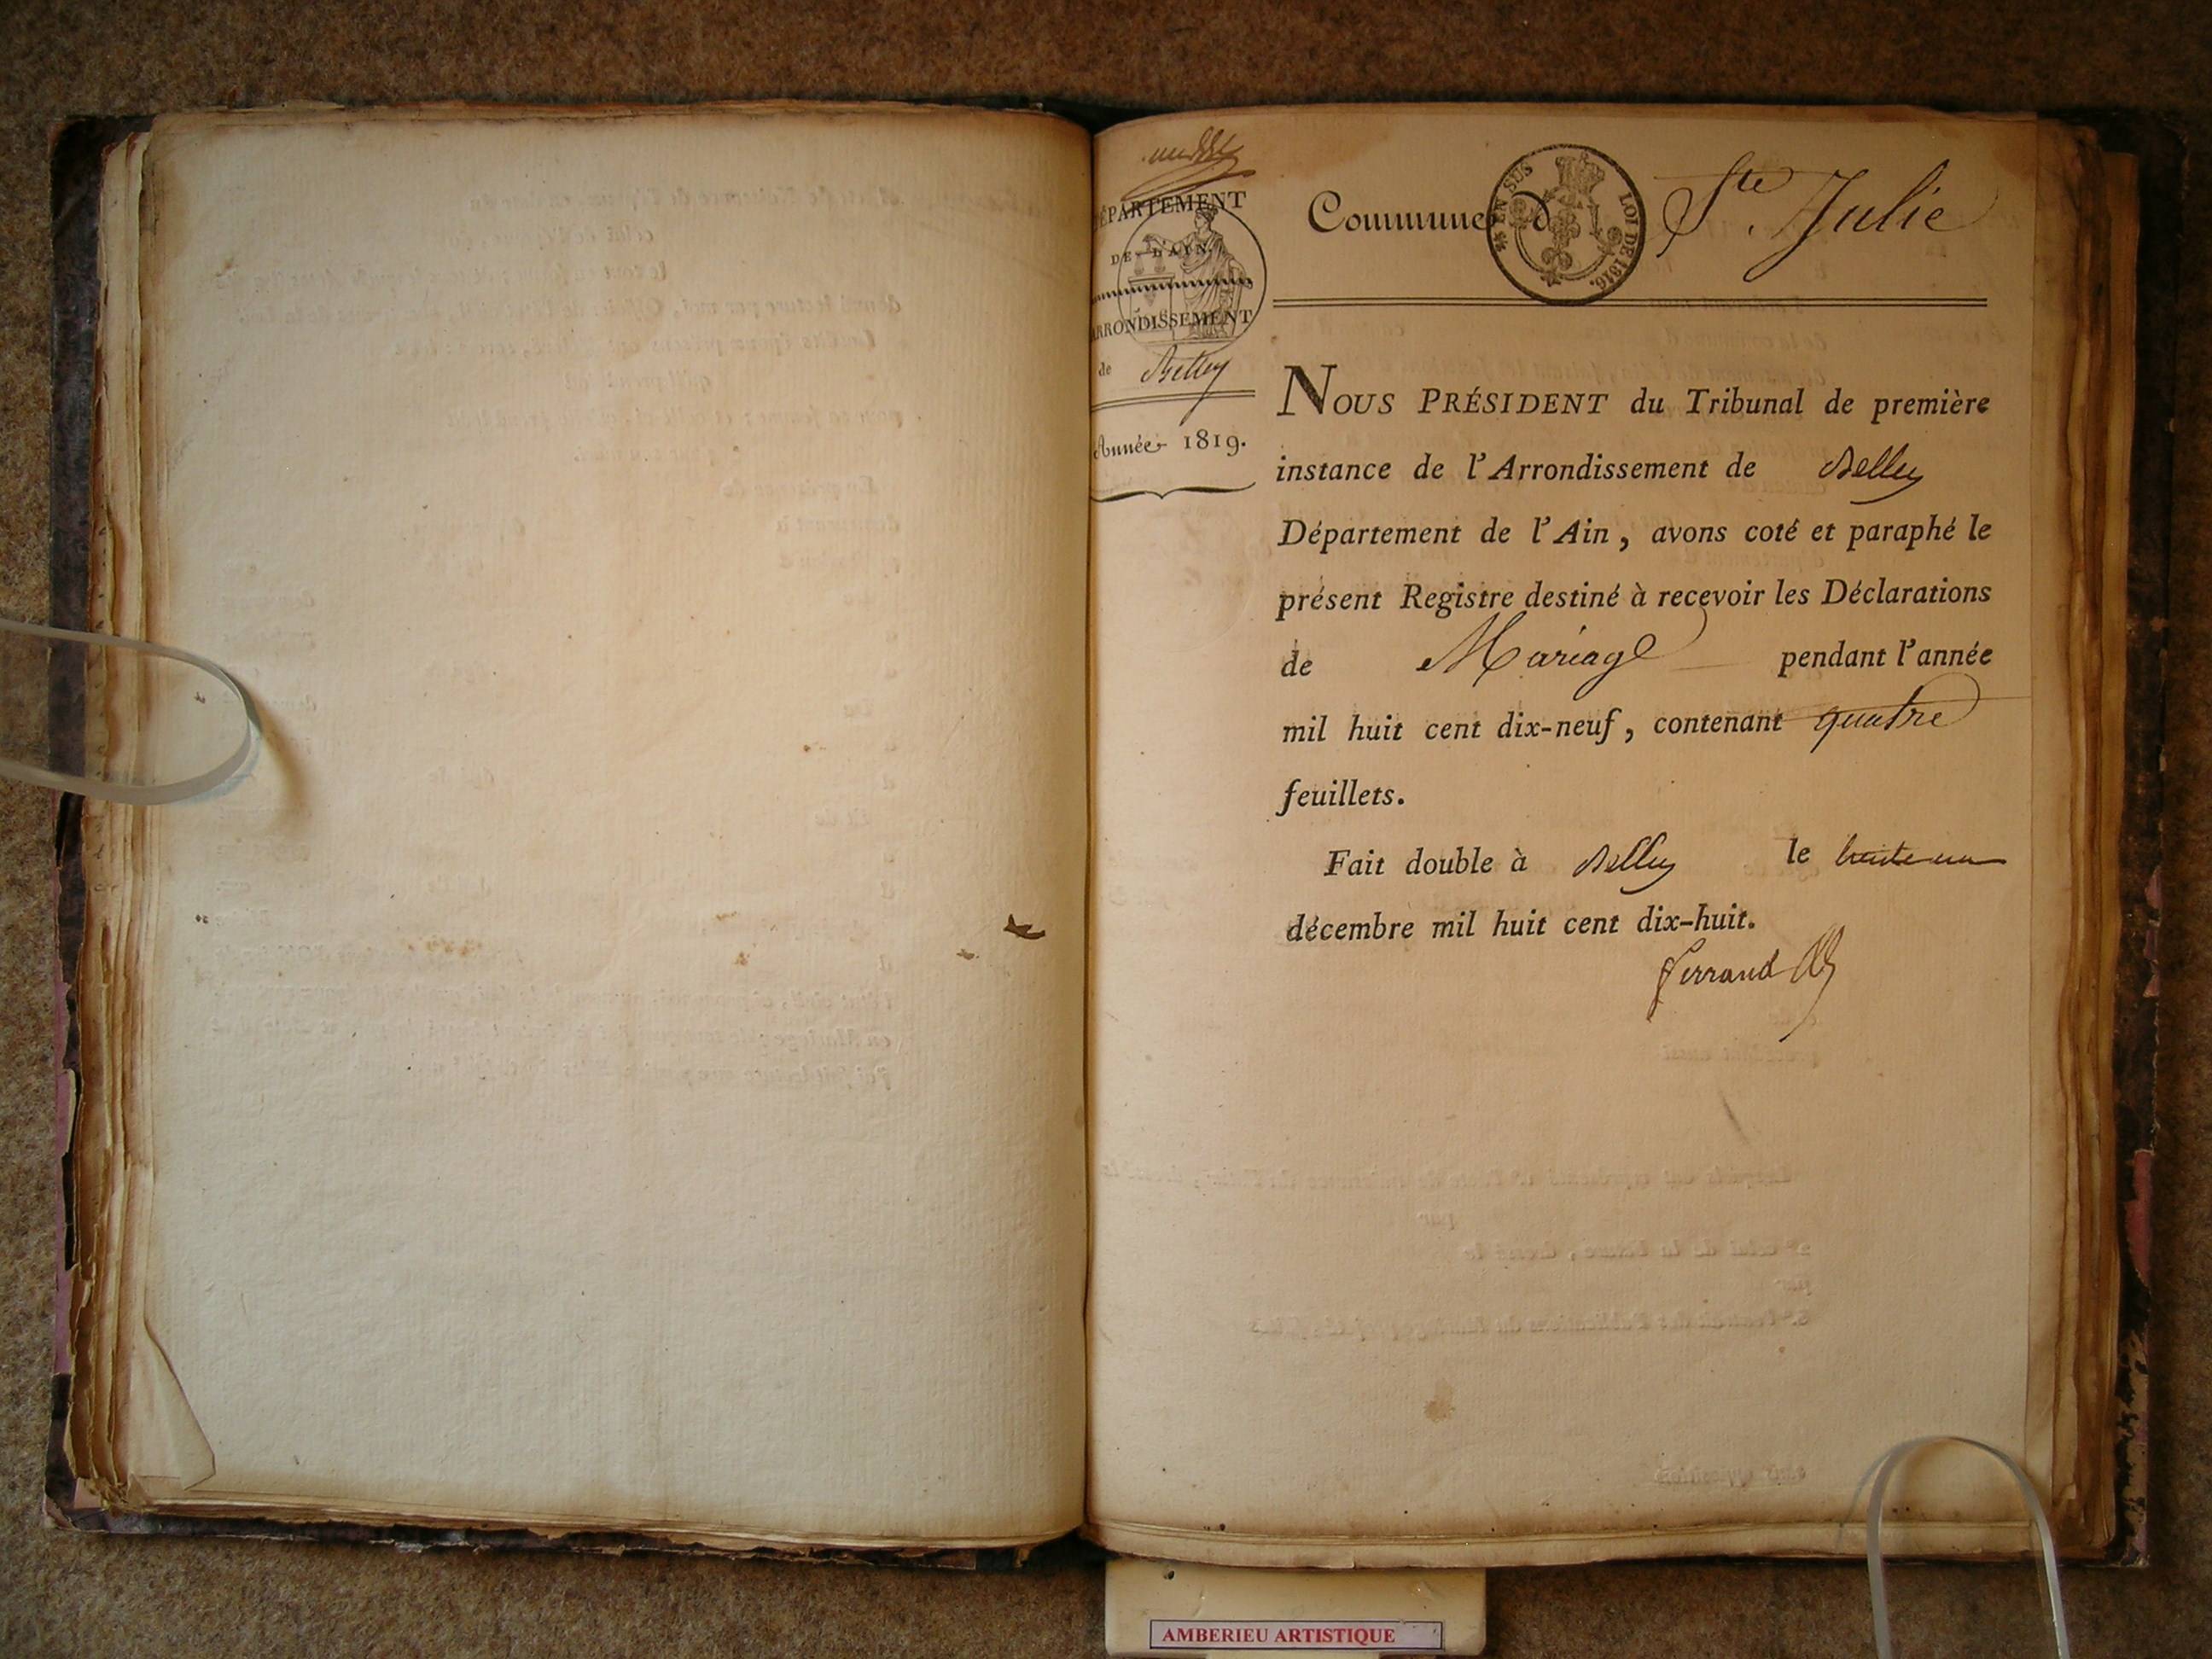 DÉPARTEMENT
DE L'AIN.
ARRONDISSEMENT
de Belley
Année 1819.
Commune d
EN SUS
LOI DE 1816.
Ste. Julie
NOUS PRÉSIDENT du Tribunal de première
instance de l'Arrondissement de Belley
Département de l'Ain, avons coté et paraphé le
présent Registre destiné à recevoir les Déclarations
de Mariage pendant l'année
mil huit cent dix-neuf, contenant quatre
feuillets.
Fait double à Belley le trente un
décembre mil huit cent dix-huit.
Ferrand
AMBERIEU ARTISTIQUE